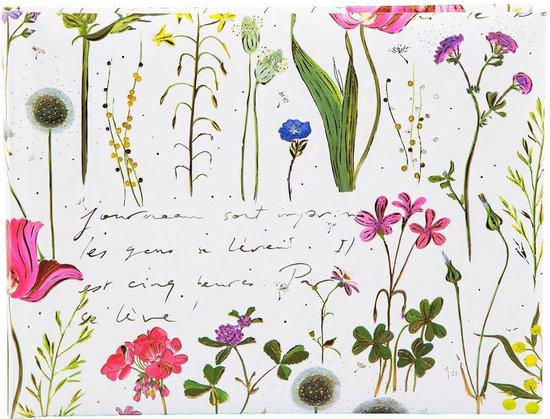 Journeau sont imprim
les gens se lèvent. Il
est cinq heures P
se lève